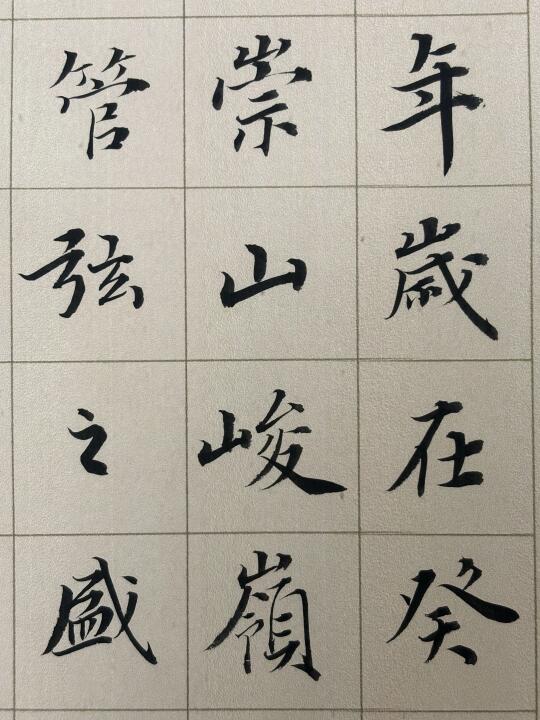 年歲在癸
崇山峻嶺
管弦之盛